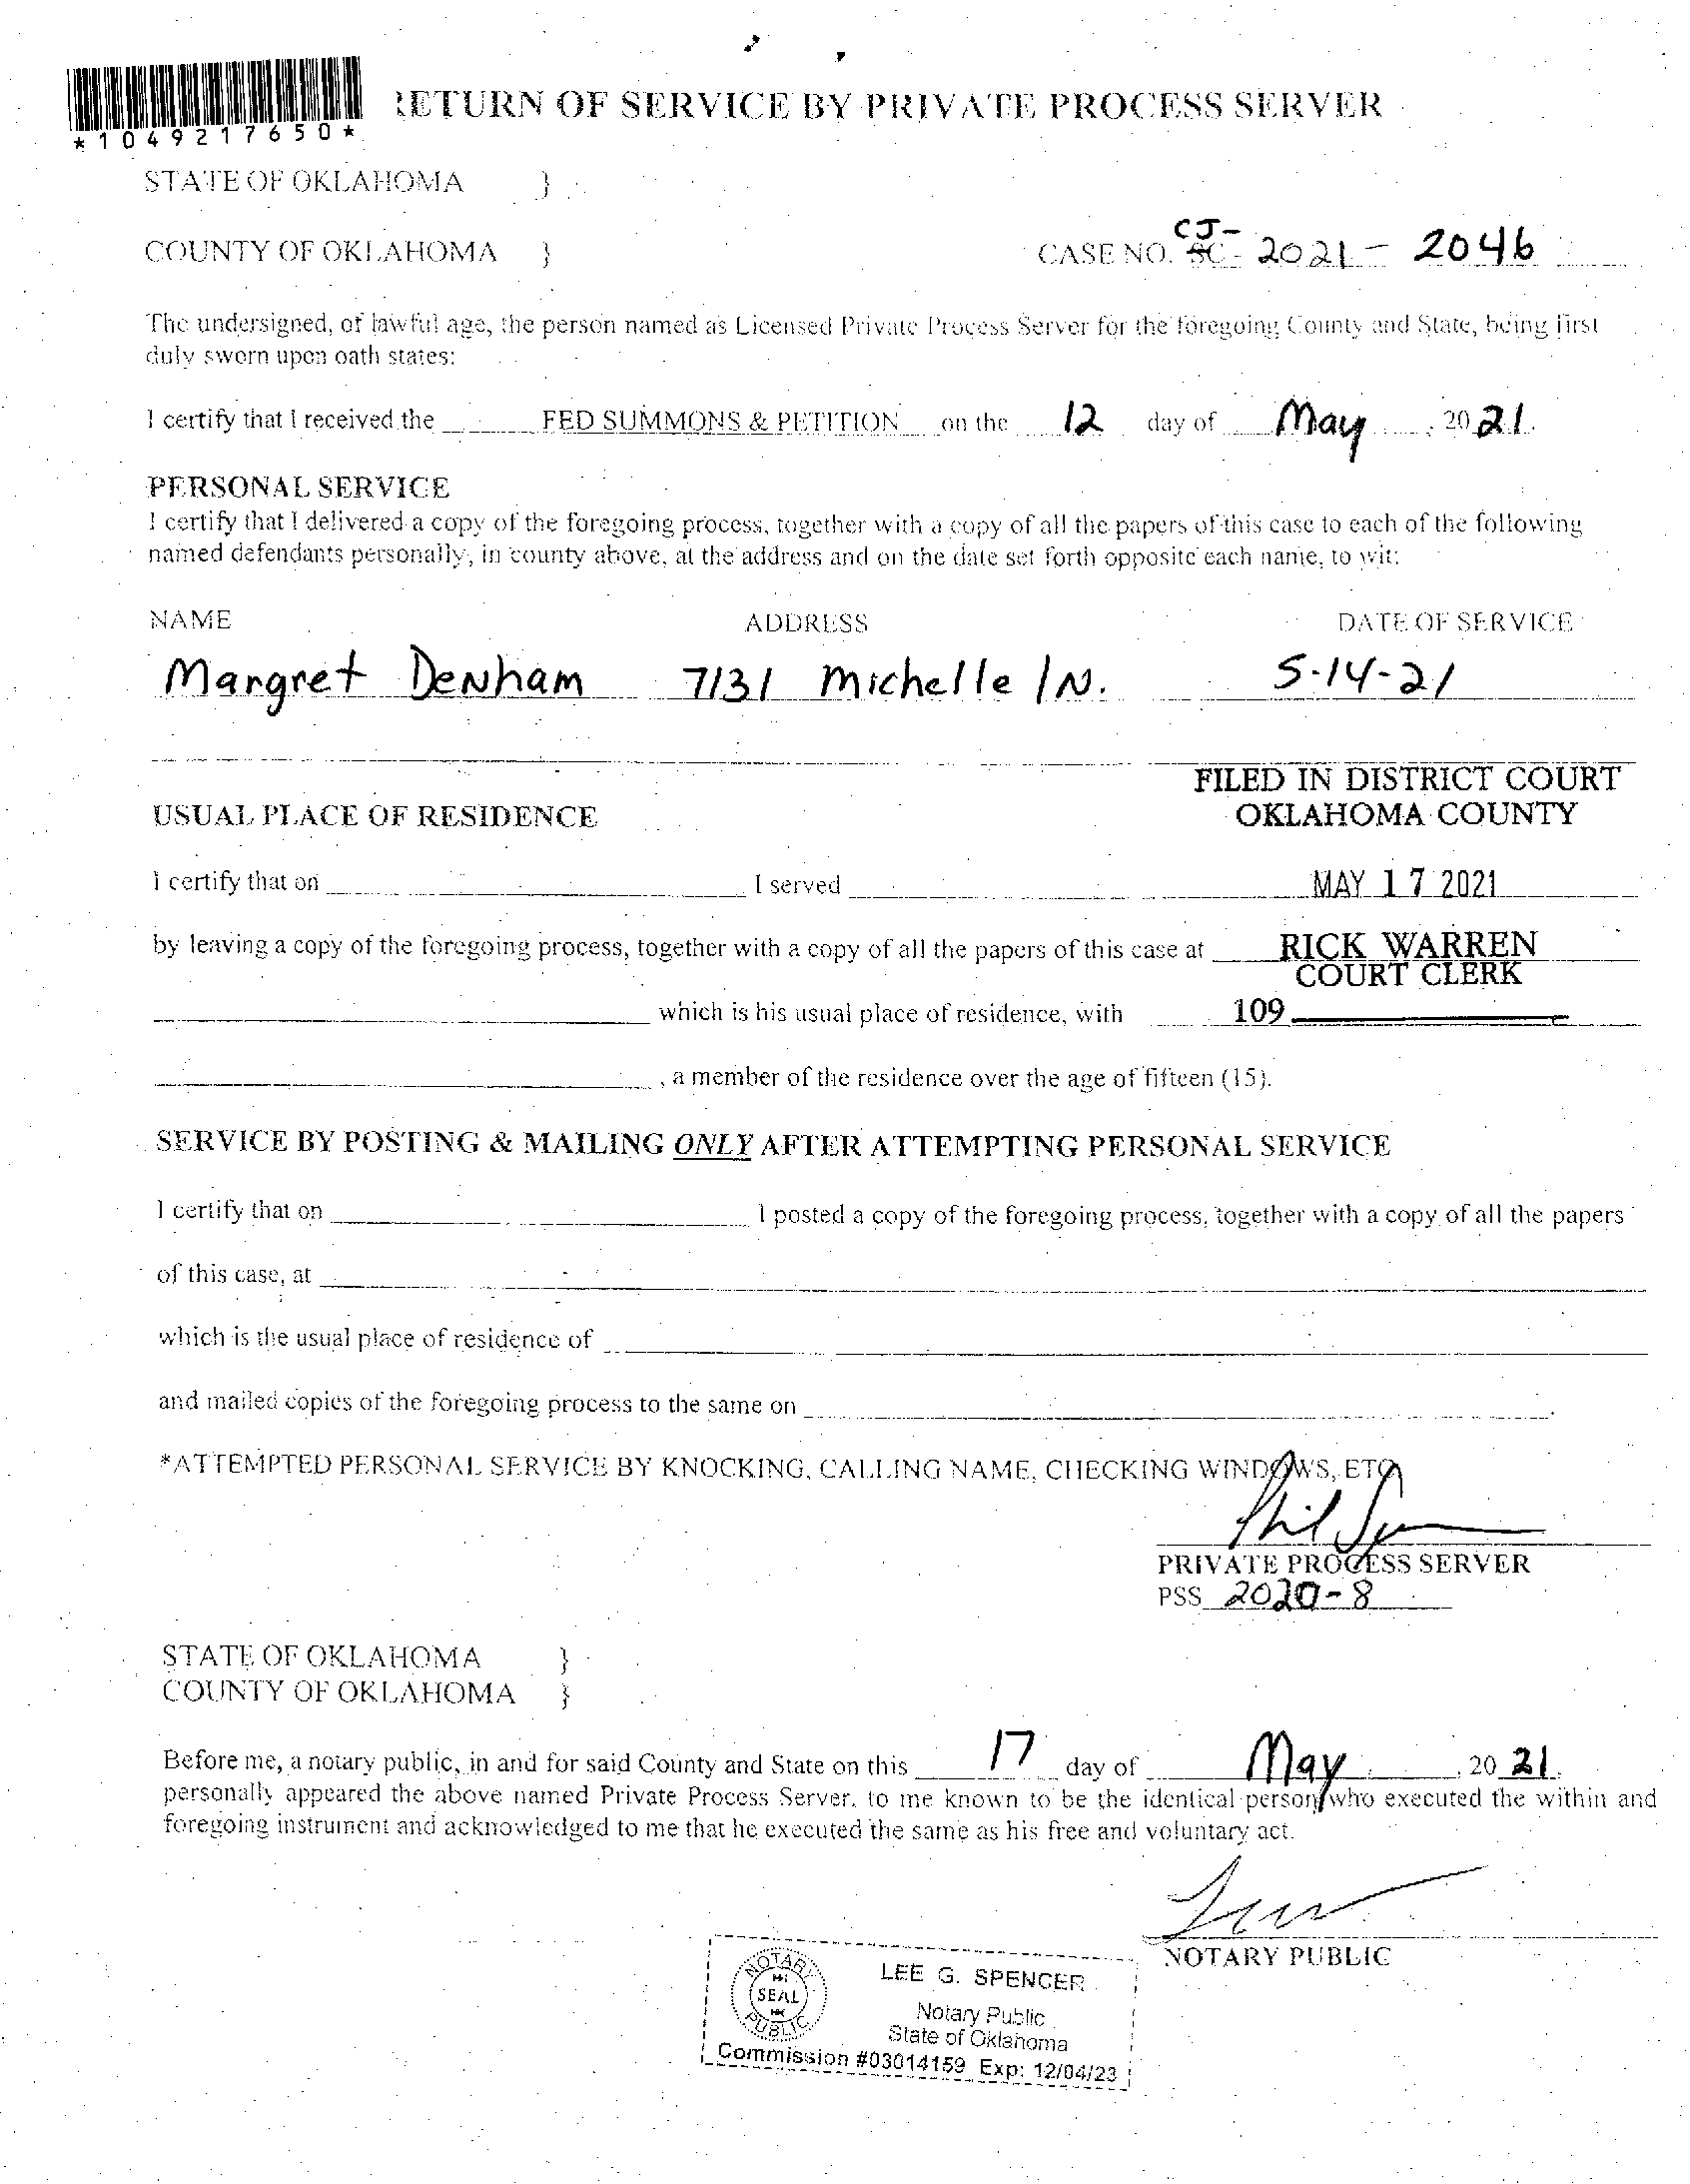 *1049217650*
RETURN OF SERVICE BY PRIVATE PROCESS SERVER
STATE OF OKLAHOMA }
CJ-
COUNTY OF OKLAHOMA } CASE NO. SC- 2021 - 2046
The undersigned, of lawful age, the person named as Licensed Private Process Server for the foregoing County and State, being first
duly sworn upon oath states:
I certify that I received the FED SUMMONS & PETITION on the 12 day of May, 2021.
PERSONAL SERVICE
I certify that I delivered a copy of the foregoing process, together with a copy of all the papers of this case to each of the following
named defendants personally, in county above, at the address and on the date set forth opposite each name, to wit:
NAME ADDRESS DATE OF SERVICE
Margret Denham 7131 Michelle lN. 5-14-21
FILED IN DISTRICT COURT
USUAL PLACE OF RESIDENCE OKLAHOMA COUNTY
I certify that on I served MAY 17 2021
by leaving a copy of the foregoing process, together with a copy of all the papers of this case at RICK WARREN
COURT CLERK
which is his usual place of residence, with 109
, a member of the residence over the age of fifteen (15).
SERVICE BY POSTING & MAILING ONLY AFTER ATTEMPTING PERSONAL SERVICE
I certify that on I posted a copy of the foregoing process, together with a copy of all the papers
of this case, at
which is the usual place of residence of
and mailed copies of the foregoing process to the same on .
*ATTEMPTED PERSONAL SERVICE BY KNOCKING, CALLING NAME, CHECKING WINDOWS, ETC
PRIVATE PROCESS SERVER
PSS 2020-8
STATE OF OKLAHOMA }
COUNTY OF OKLAHOMA }
Before me, a notary public, in and for said County and State on this 17 day of May, 2021.
personally appeared the above named Private Process Server, to me known to be the identical person who executed the within and
foregoing instrument and acknowledged to me that he executed the same as his free and voluntary act.
NOTARY PUBLIC
NOTARY
SEAL
PUBLIC
LEE G. SPENCER
Notary Public
State of Oklahoma
Commission #03014159 Exp: 12/04/23